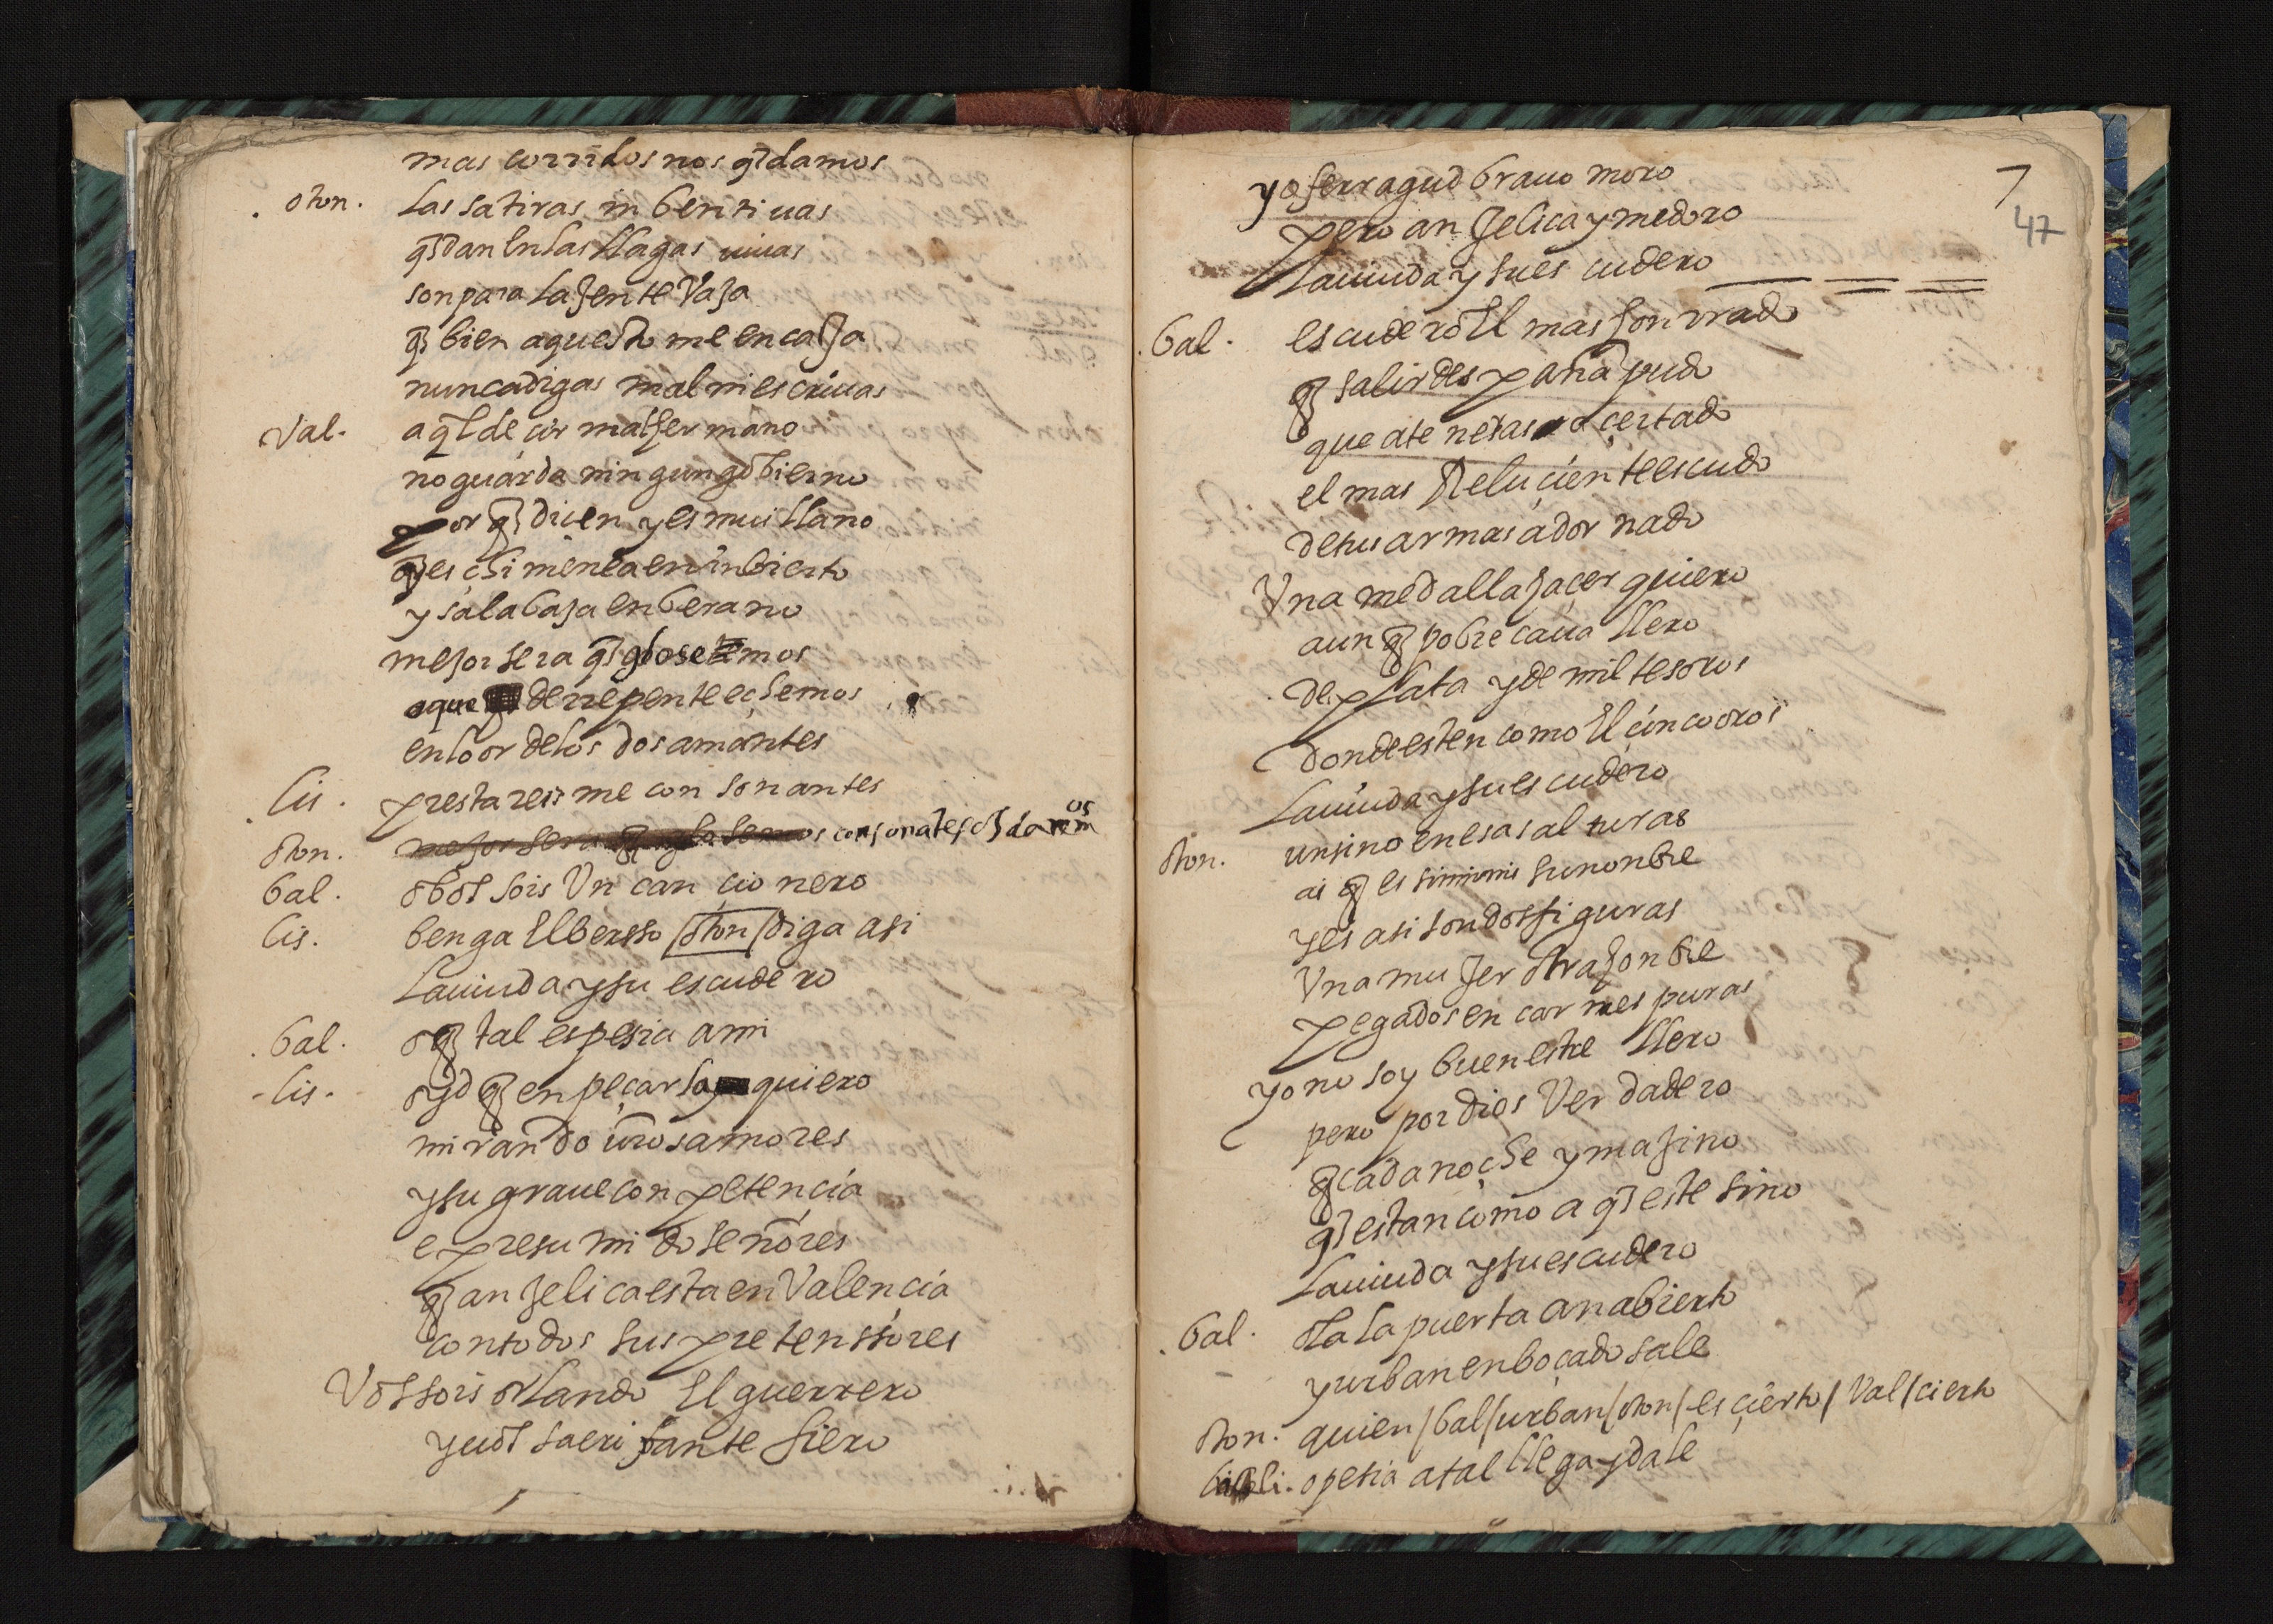 mas corridos nos q̄damos
oton. las satiras inbentiuas
q̄ dan en las llagas uiuas
son para la jente vaja
q̄ bien aquesto me encaja
nunca digas mal ni escriuas
Val. aq̄l decir mal hermano
no guarda ningun gobierno
por q̄ dicen y es mui llano
q̄ es chimenea en inbierto
y sala baja en berano
mejor sera q̄ glosemos
aque derrepente echemos
en loor de los dos amantes
lis. prestareis me consonantes
oton. mejor sera q̄ glosemos consonātes os daremos
bal. o bos sois vn cancionero
lis. benga el bersso / oton / diga asi
la uiuda y su escudero
bal. o q̄ tal es pesia a mi
lis. oyd q̄ enpeçarla quiero
mirando ūros amores
y su graue conpetencia
e presumido señores
q̄ anjelica esta en Valencia
con todos sus pretenssores
Vos sois orlando el guerrero
y uos sacripante fiero
7
47
yo ferragud brauo moro
pero anjelica y medoro
la uiuda y su escudero
bal. escudero el mas honrrado
q̄ salir despaña pudo
que atenetas o çertado
el mas Reluciente escudo
de tus armas adornado
Vna medalla hacer quiero
aunq̄ pobre cauallero
de plata y de mil tesoros
donde esten como el cinco oros
la uiuda y su escudero
oton. un sino en esas alturas
ai q̄ es siminis su nonbre
y es asi son dos figuras
Vna mujer otra honbre
pegados en carnes puras
yo no soy buen estrellero
pero por dios Verdadero
q̄ cada noche ymajino
q̄ estan como aq̄este sino
la uiuda y su escudero
bal. ola la puerta an abierto
y urban enboçado sale
oton. quien / bal / urban / oton / es çierto / Val / cierto
li. o pesia a tal llega y dale